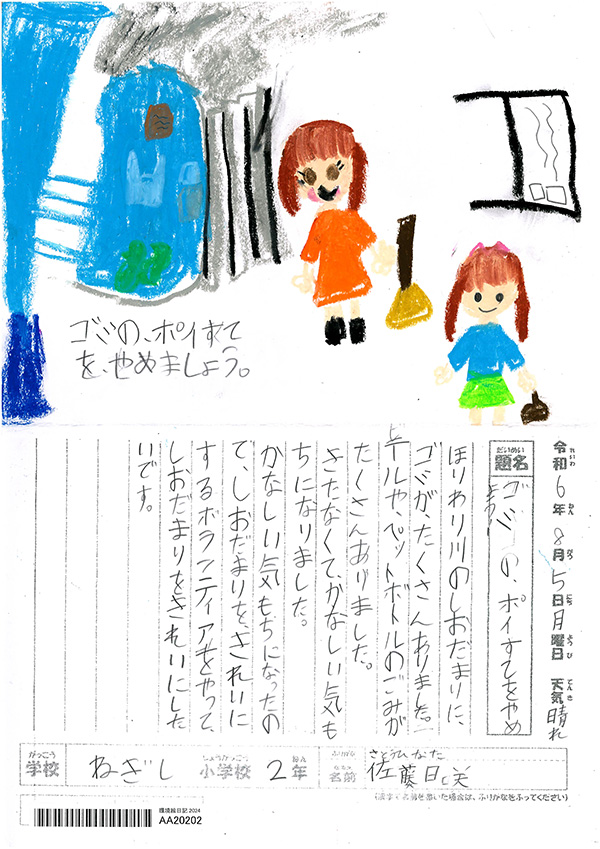 ゴミの、ポイすて
を、やめましょう。
令和6年8月5日月曜日 天気 晴れ
題名 ゴミの、ポイすてをやめ
よう
ほりわり川のしおだまりに、
ゴミが、たくさんありました。ビ
ニールや、ペットボトルのごみが
たくさんありました。
きたなくて、かなしい気も
ちになりました。
かなしい気もちになったの
で、しおだまりを、きれいに
するボランティアをやって、
しおだまりをきれいにした
いです。
がっこう しょうがっこう ねん
学校 ねぎし 小学校 2年 名前 佐藤
さとうひなた
環境絵日記 2024
AA20202